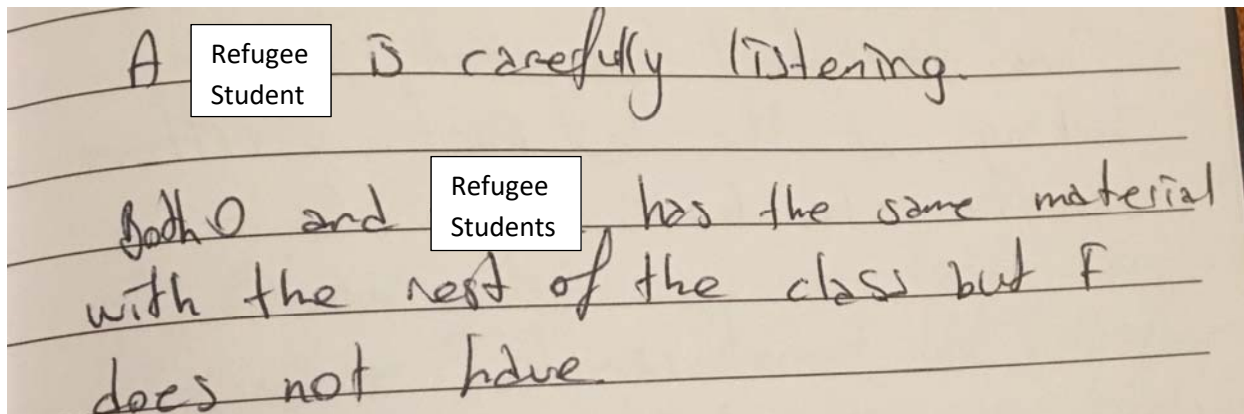 A Refugee Student is carefully listening.
Both O and Refugee Students has the same material
with the rest of the class but F
does not have.